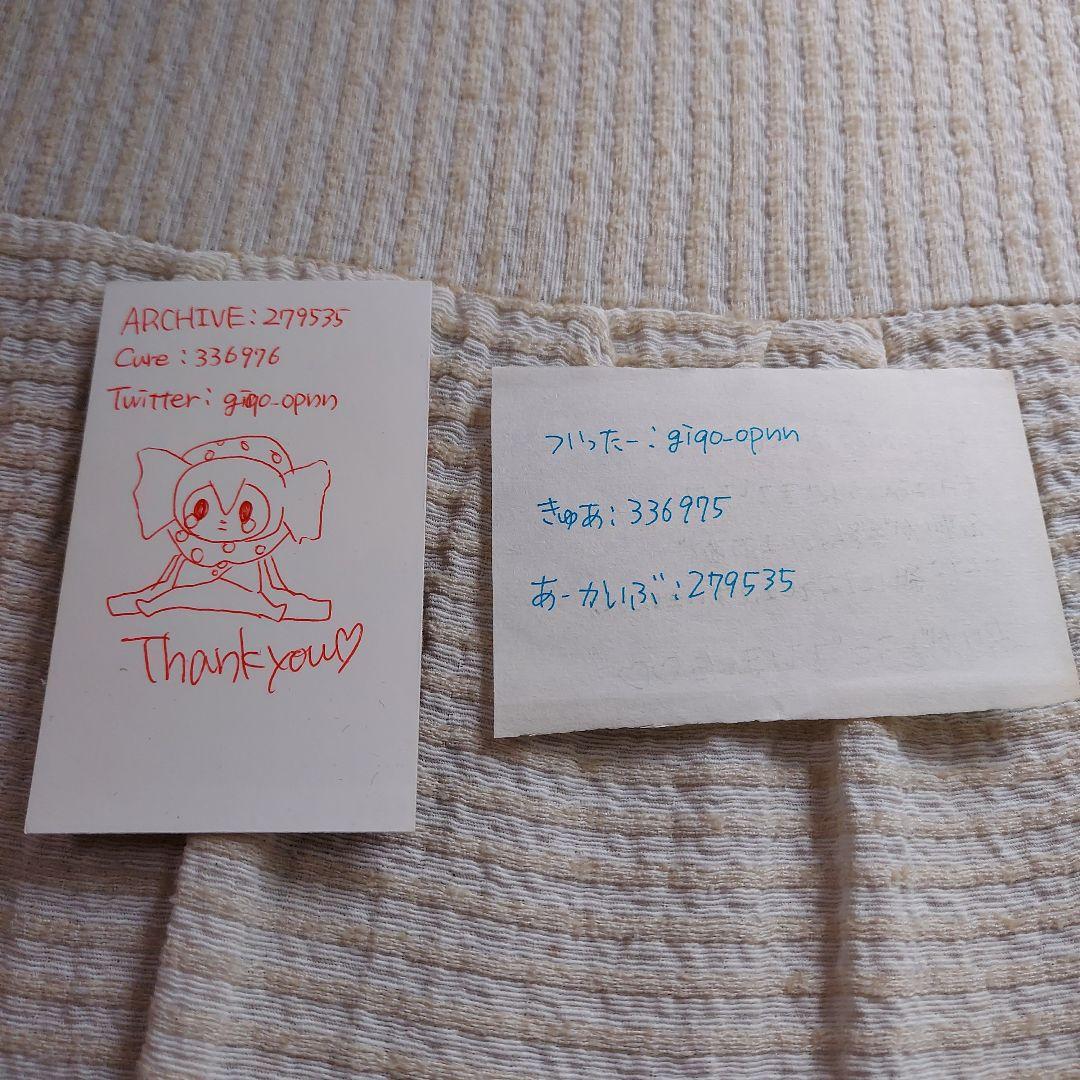 ARCHIVE: 279535
Cure: 336976
Twitter: giqo_opnn
Thank you♡
ついったー: giqo_opnn
きゅあ: 336975
あーかいぶ: 279535